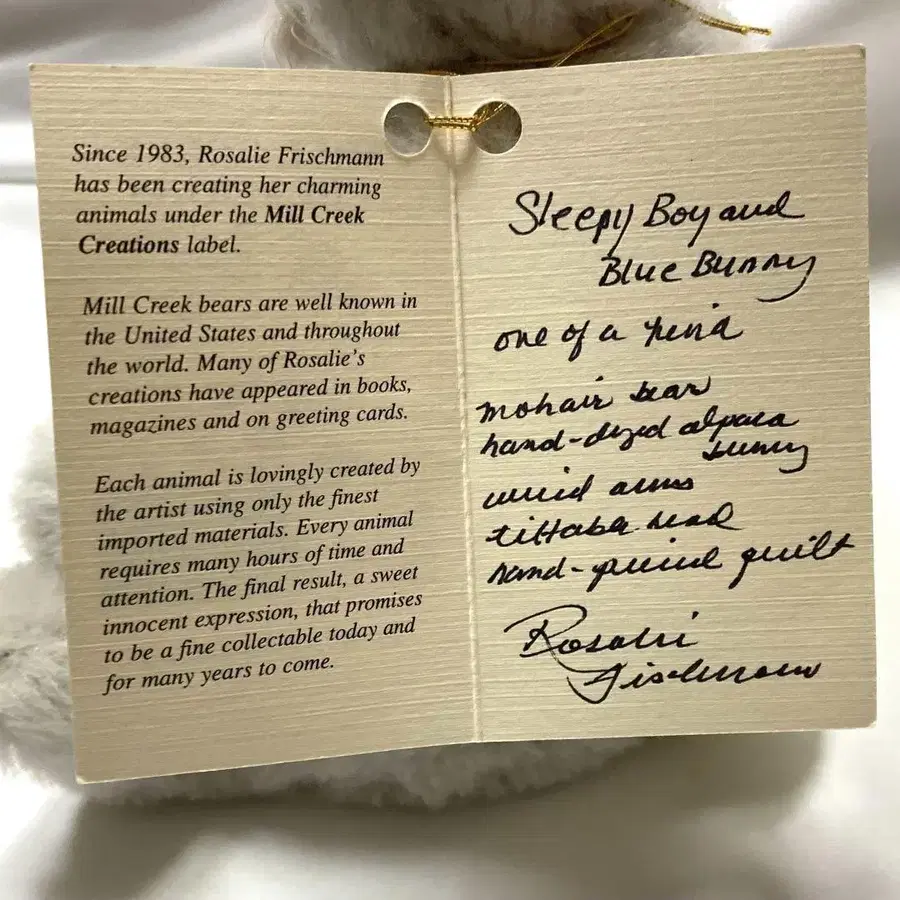 Since 1983, Rosalie Frischmann
has been creating her charming
animals under the Mill Creek
Creations label.
Mill Creek bears are well known in
the United States and throughout
the world. Many of Rosalie's
creations have appeared in books,
magazines and on greeting cards.
Each animal is lovingly created by
the artist using only the finest
imported materials. Every animal
requires many hours of time and
attention. The final result, a sweet
innocent expression, that promises
to be a fine collectable today and
for many years to come.
Sleepy Boy and
Blue Bunny
one of a kind
mohair bear
hand-dyed alpaca
bunny
wired arms
tiltable head
hand-pieced quilt
Rosalie
Frischmann